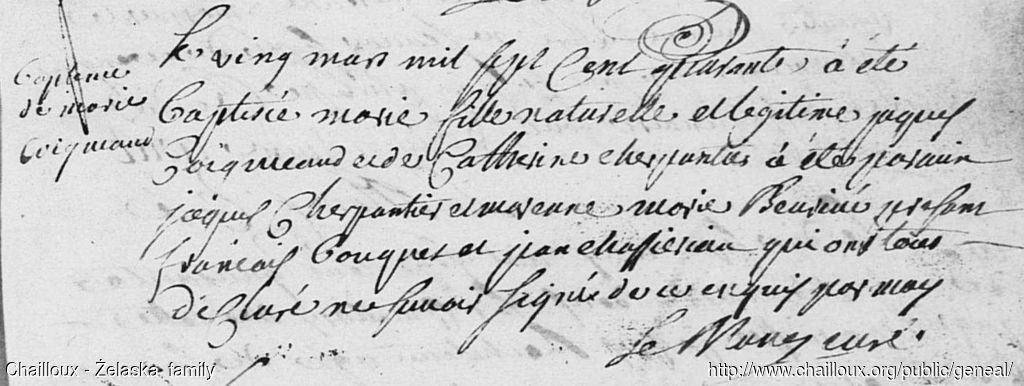 Baptême
de marie
Coigneaud
le vinq mars mil sept Cent quarante à été
Baptisée marie fille naturelle et legitime jaques
Coigneaud et de Catherine cherpantier à été parain
jaques Cherpantier et marenne marie present
francois Bouques et jean chasseriau qui ont tous
déClaré ne savoir signé de ce enquis par moy
curé.
Chailloux - Żelaska family
http://www.chailloux.org/public/geneal/